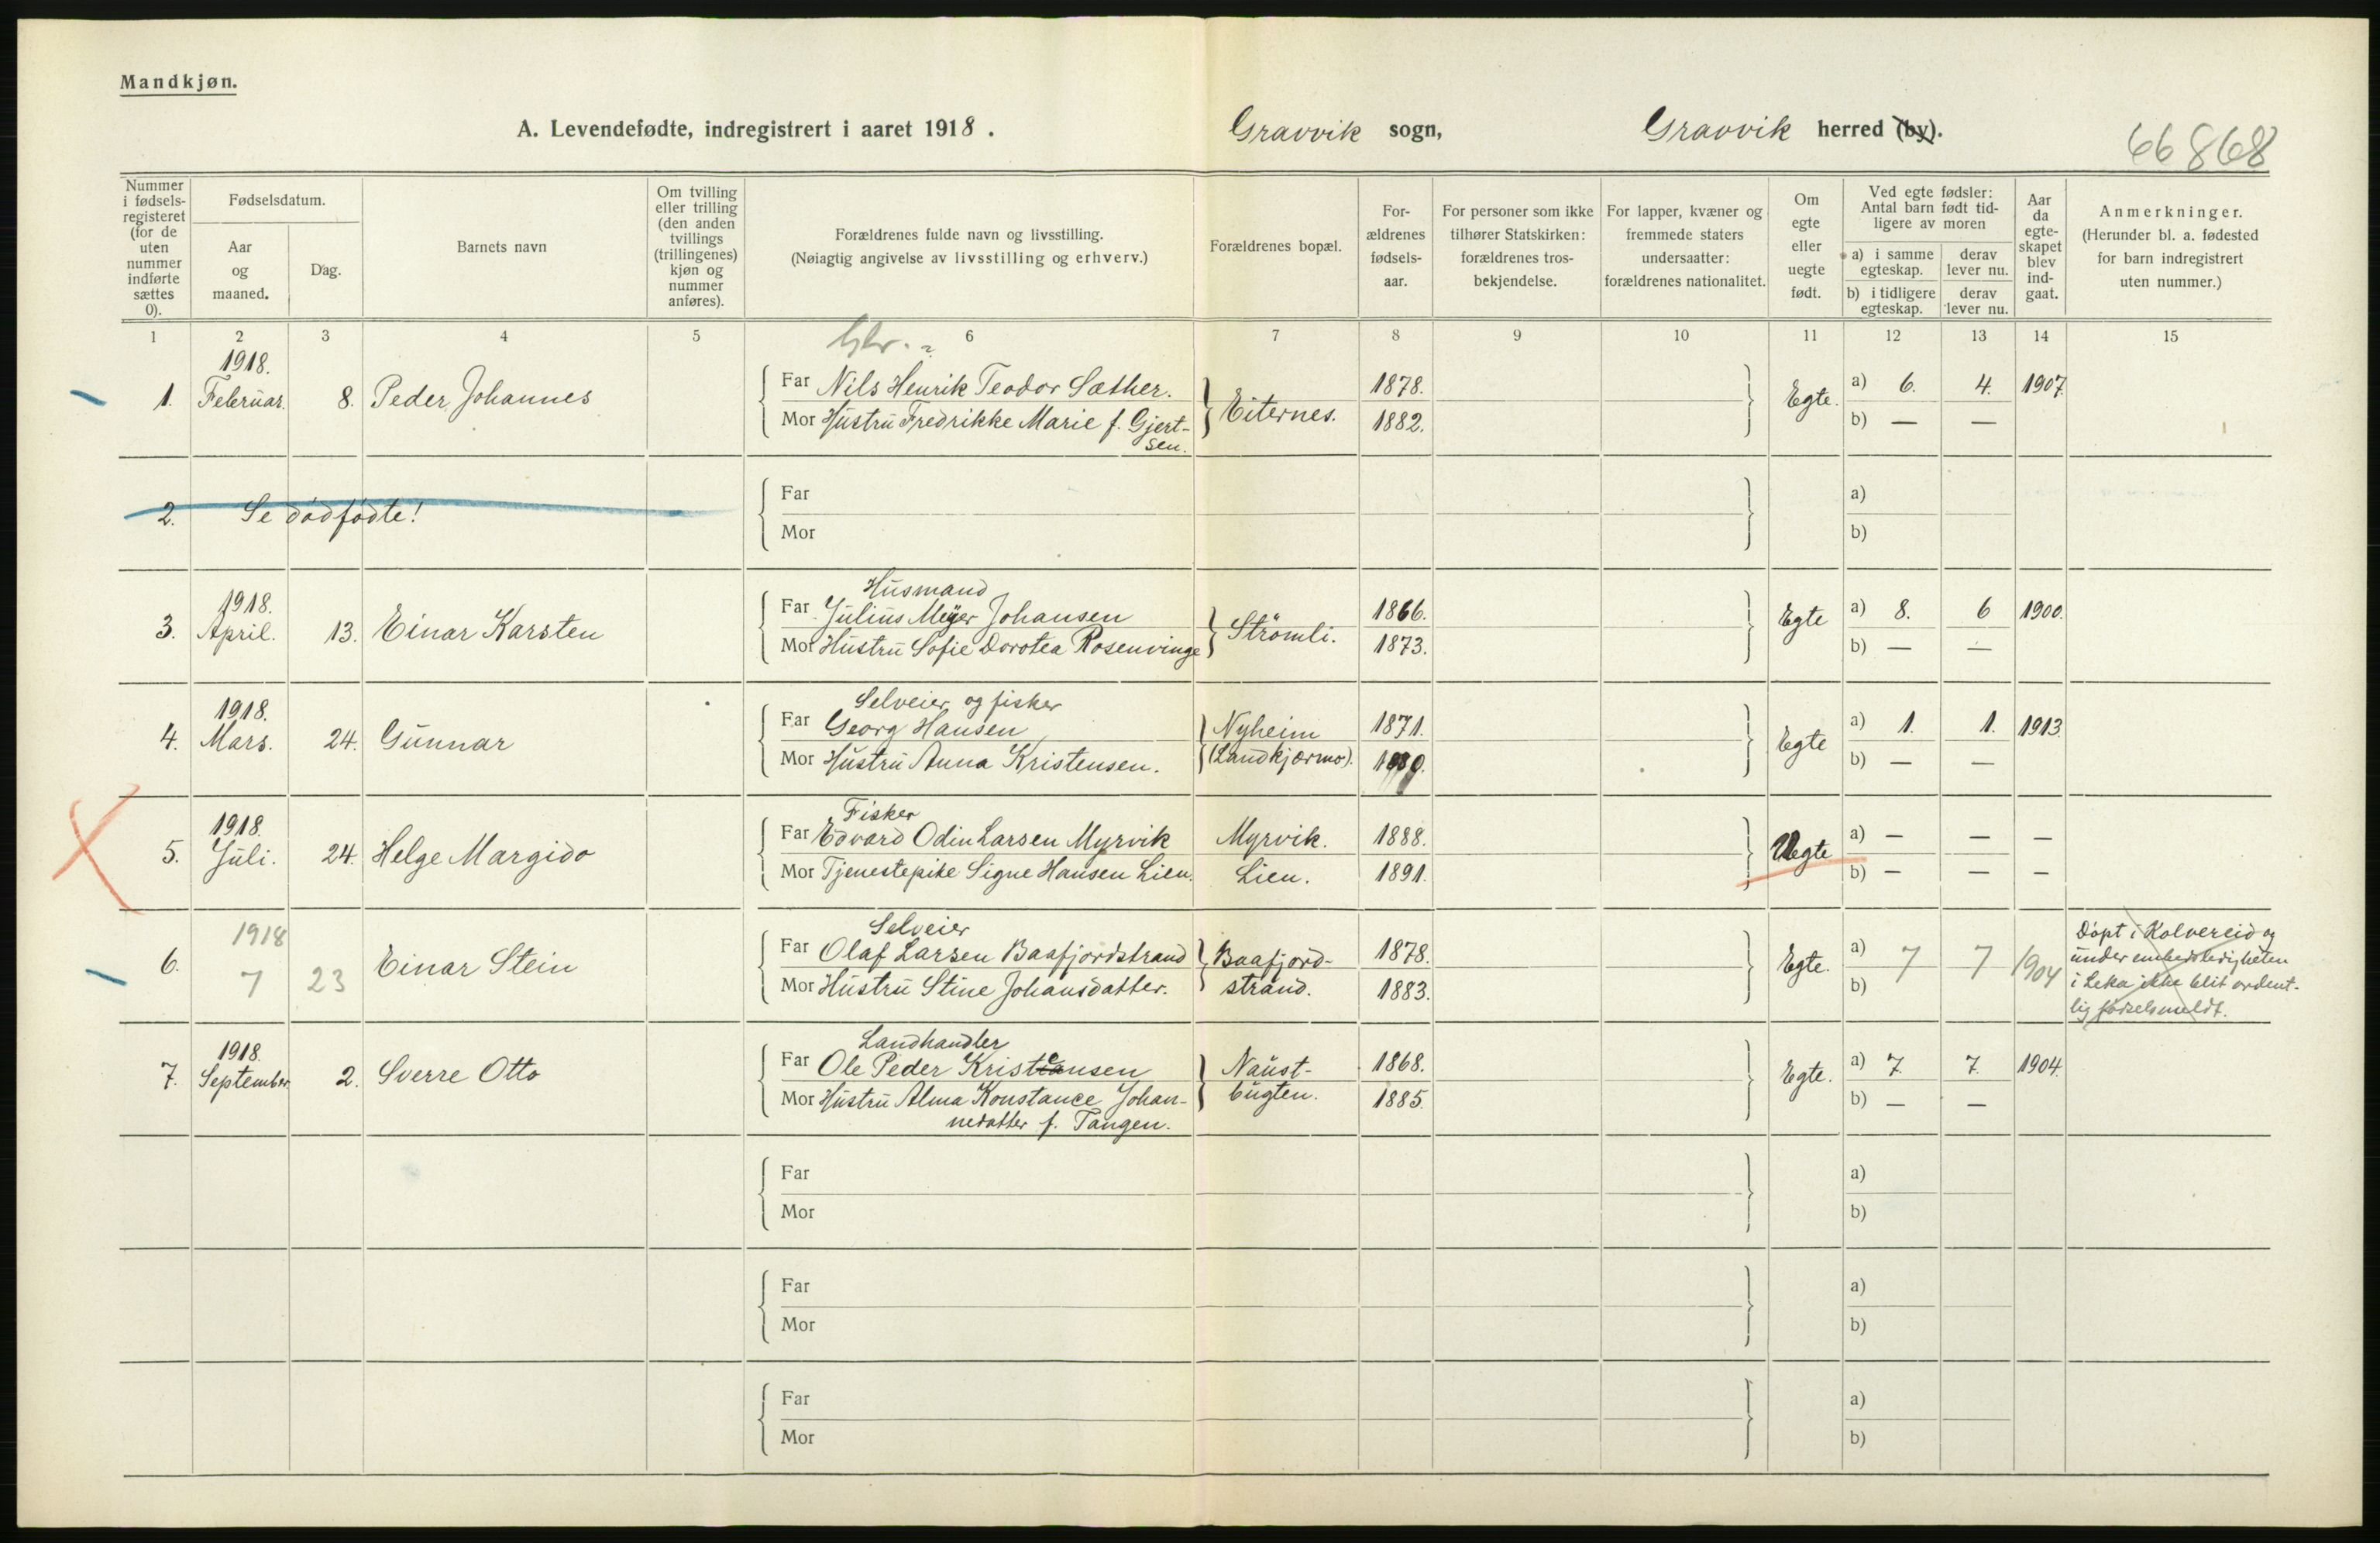 Mandkjøn.
A. Levendefødte, indregistrert i aaret 1918 . Gravvik sogn, Gravvik herred (by).
66868
Nummer i fødsels-registeret (for de uten nummer indførte sættes 0).
Fødselsdatum.
Aar og maaned.
Dag.
Barnets navn
Om tvilling eller trilling (den anden tvillings (trillingenes) kjøn og nummer anføres).
Forældrenes fulde navn og livsstilling.
(Nøiagtig angivelse av livsstilling og erhverv.)
Forældrenes bopæl.
For-ældrenes fødsels-aar.
For personer som ikke tilhører Statskirken: forældrenes tros-bekjendelse.
For lapper, kvæner og fremmede staters undersaatter: forældrenes nationalitet.
Om egte eller uegte født.
Ved egte fødsler: Antal barn født tid-ligere av moren
a) i samme egteskap. derav lever nu.
b) i tidligere egteskap. derav lever nu.
Aar da egte-skapet blev ind-gaat.
Anmerkninger.
(Herunder bl. a. fødested for barn indregistrert uten nummer.)
1 2 3 4 5 6 7 8 9 10 11 12 13 14 15
1. 1918. Februar. 8. Peder Johannes
Far Nils Henrik Teodor Sæther. 1878. a) 6. 4. 1907.
Eiternes. Egte.
Mor Hustru Fredrikke Marie f. Gjert-
sen. 1882. b) — —
2. Se dödfödte!
Far a)
Mor b)
3. 1918. April. 13. Einar Karsten
Husmand
Far Julius Meyer Johansen 1866. a) 8. 6 1900.
Strömli. Egte
Mor Hustru Sofie Dorotea Rosenvinge 1873. b) — —
4. 1918. Mars. 24. Gunnar
Selveier og fisker
Far Georg Hansen Nyheim 1871. Egte a) 1. 1. 1913.
Mor Hustru Anna Kristensen. (Landkjærmo). b) — —
5. 1918. Juli. 24. Helge Margido
Fisker
Far Edvard Odin Larsen Myrvik Myrvik. 1888. Uegte a) — — —
Mor Tjenestepike Signe Hansen Lien. Lien. 1891. b) — — —
6. 1918 7 23 Einar Stein
Selveier
Far Olaf Larsen Baafjordstrand Baafjord- 1878. Egte. a) 7 7 1904
Mor Hustru Stine Johansdatter. strand. 1883. b)
Döpt i Kolvereid og
under embedsledigheten
i Leka ikke blit ordent-
lig födselsmeldt.
7. 1918. September 2. Sverre Otto
Landhandler
Far Ole Peder Kristensen Naust- 1868. Egte. a) 7. 7. 1904.
Mor Hustru Alma Konstance Johan- bugten. 1885. b) — —
nedatter f. Tangen.
Far a)
Mor b)
Far a)
Mor b)
Far a)
Mor b)